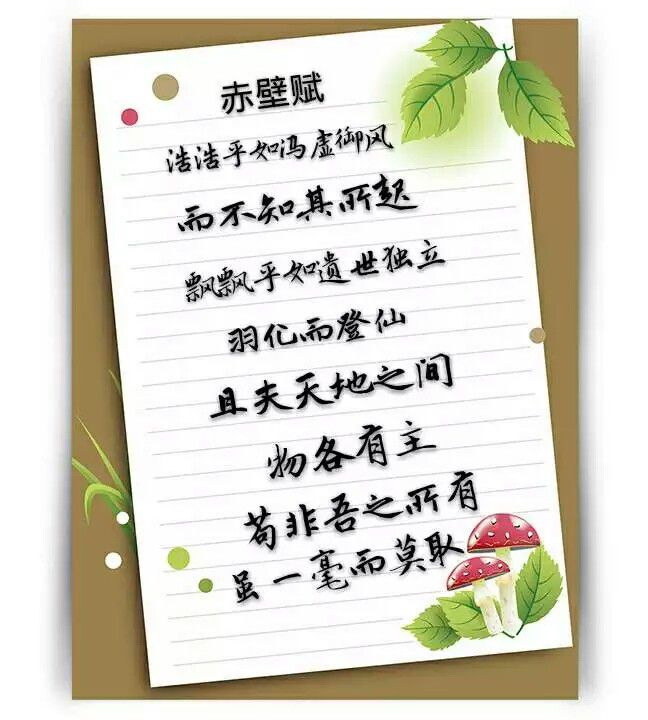 赤壁赋
浩浩乎如冯虚御风
而不知其所起
飘飘乎如遗世独立
羽化而登仙
且夫天地之间
物各有主
苟非吾之所有
虽一毫而莫取